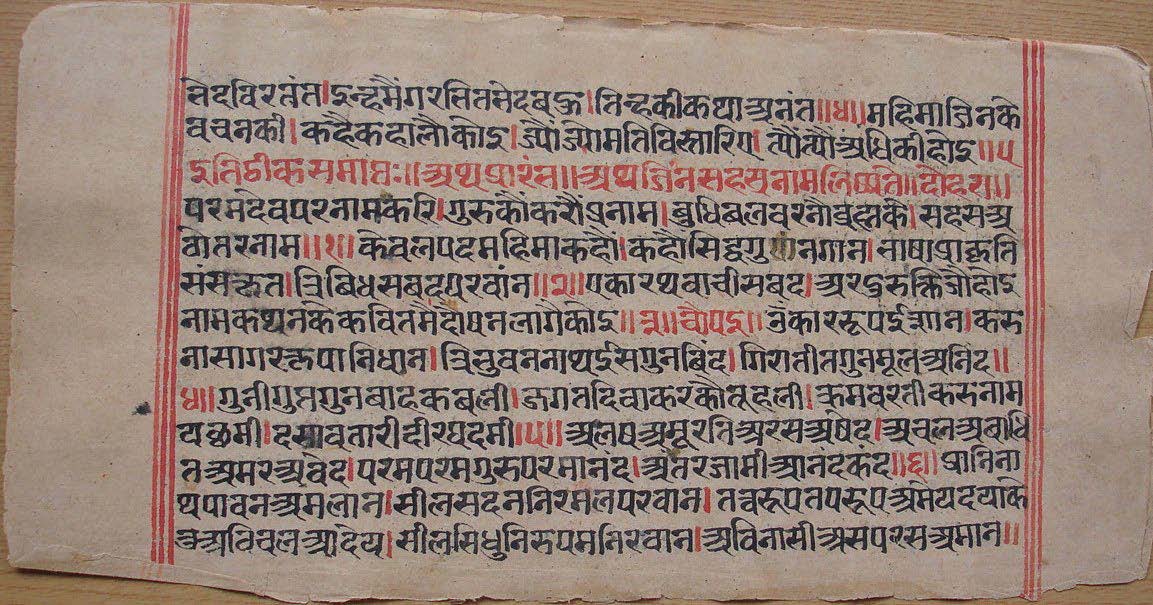 भेदविरतंत। इन्हमैंगरभितभेदबहु। तिन्हकीकथाअनंत॥४॥ महिमाजिनके
वचनकी। कहैकहालौकोइ। ज्यौज्यौमतिविस्तारिए। त्यौंत्यौंअधिकीहोइ॥५
इतिटीकसमाप्तः॥ अथप्रारंभ॥ अथजिनसहस्रनामलिख्यते॥ दोहरा॥
परमदेवपरनामकरि। गुरुकौंकरौंप्रनाम। बुधिबलवरनौब्रह्मके। सहसअ
ठोतरनाम॥१॥ केवलपदमहिमाकहौ। कहौसिद्धगुनगान। भाषाप्राकृति
संसकृत। त्रिबिधसबदपरवांन॥२॥ एकारथवाचीसबद। अरुद्विरुक्तिजौहोइ
नामकथनकेकवितमैं। दोषनलागैकोइ॥३॥ चौपइ॥ उंकाररूपईशान। करु
नासागरकृपानिधान। त्रिभुवननाथईसगुनबिंद। गिरातीतगुनमूलअनिंद॥
४॥ गुनीगुप्तगुनबाहकबली। जगतदिवाकरकौतूहली। क्रमवरतीकरुनाम
यछमी। दसावतारीदीरघदमी॥५॥ अलषअमूरतिअरसअषेद। अचलअबाधि
तअमरअवेद। परमपरमगुरुपरमानंद। अंतरजामीआनंदकंद॥६॥ प्रानना
थपावनअमलान। सीलसदननिरमलपरवान। तत्वरूपतपरूपअमेय। दयाके
तुअविचलआदेय। सीलसिंधुनिरुपमनिरवान। अविनासीअसपरसअमान॥